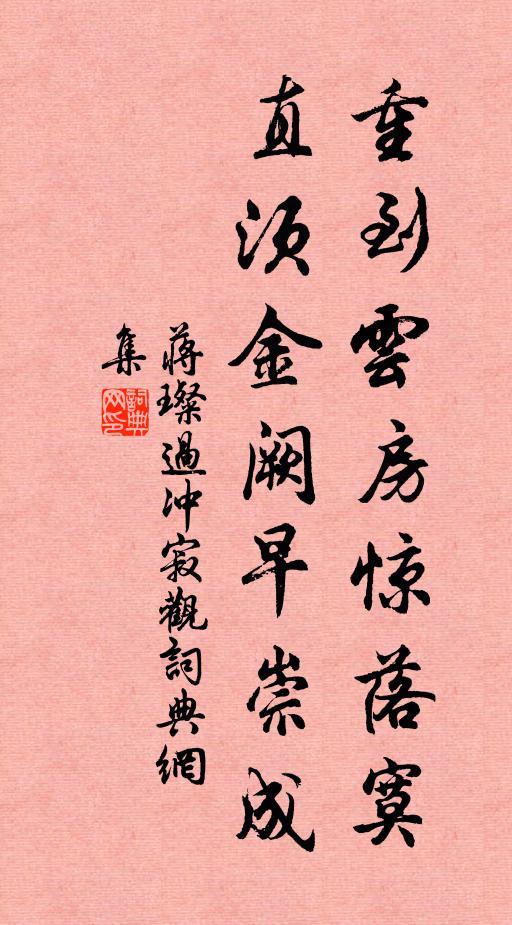 重到雲房惊落寞
直须金阙早崇成
蒋璨過冲寂觀詞典網
集
詞典网印